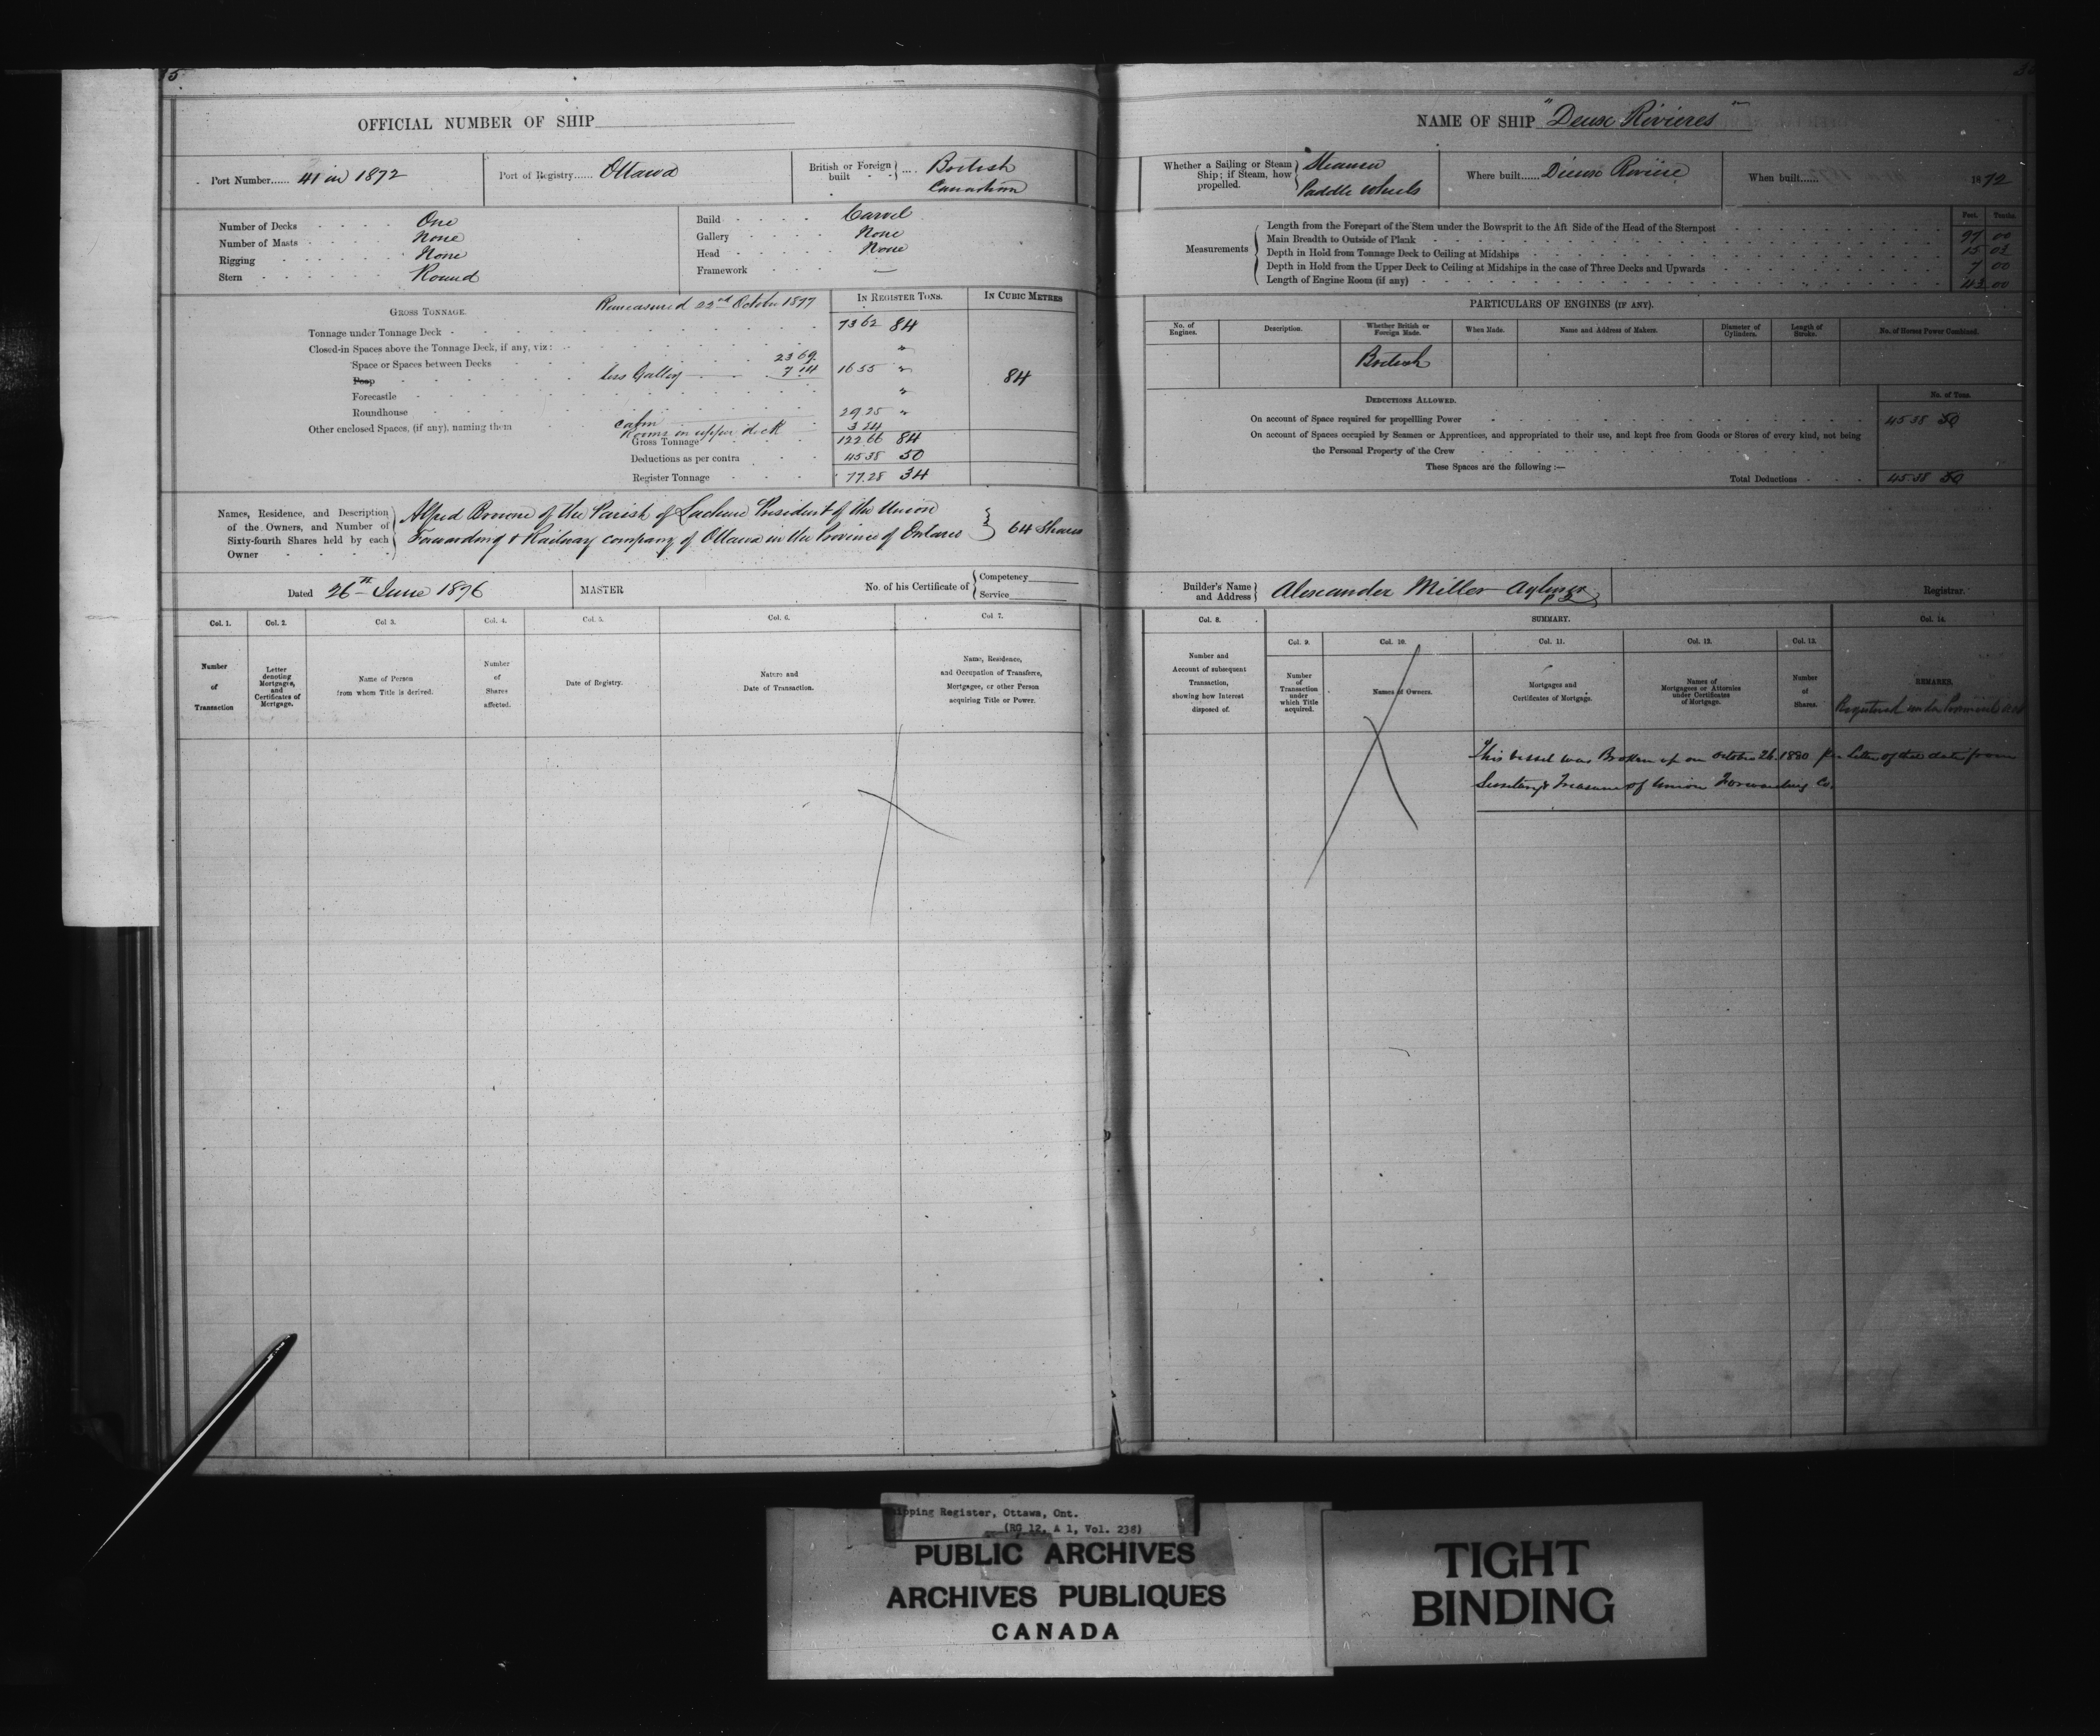 5
OFFICIAL NUMBER OF SHIP
Port Number...... 41 in 1872
Port of Registry...... Ottawa
British or Foreign built .... British Canadian
Number of Decks One
Number of Masts None
Rigging None
Stern Round
Build Carvel
Gallery None
Head None
Framework —
Remeasured 22nd October 1877
GROSS TONNAGE.
IN REGISTER TONS.
IN CUBIC METRES
Tonnage under Tonnage Deck 73 62 84
Closed-in Spaces above the Tonnage Deck, if any, viz: "
Space or Spaces between Decks 23 69
Poop less Galley 7 14 16 55 " 84
Forecastle "
Roundhouse 29.25 "
Other enclosed Spaces, (if any), naming them cabin 3 24
Rooms in upper deck
Gross Tonnage 122.66 84
Deductions as per contra 45 38 50
Register Tonnage 77.28 34
Names, Residence, and Description of the Owners, and Number of Sixty-fourth Shares held by each Owner
Alfred Browne of the Parish of Lachine President of the Union
Forwarding & Railway company of Ottawa in the Province of Ontario } 64 Shares
Dated 26th June 1876
MASTER
No. of his Certificate of { Competency
Service
Col. 1.
Col. 2.
Col 3.
Col. 4.
Col. 5.
Col. 6.
Col 7.
Number of Transaction
Letter denoting Mortgages, and Certificates of Mortgage.
Name of Person from whom Title is derived.
Number of Shares affected.
Date of Registry.
Nature and Date of Transaction.
Name, Residence, and Occupation of Transferee, Mortgagee, or other Person acquiring Title or Power.
NAME OF SHIP "Deux Rivieres"
Whether a Sailing or Steam Ship; if Steam, how propelled. Steamer Paddle wheels
Where built...... Dieux Riviere
When built...... 1872
Measurements
Feet. Tenths.
Length from the Forepart of the Stem under the Bowsprit to the Aft Side of the Head of the Sternpost 97 00
Main Breadth to Outside of Plank 15 02
Depth in Hold from Tonnage Deck to Ceiling at Midships 7 00
Depth in Hold from the Upper Deck to Ceiling at Midships in the case of Three Decks and Upwards
Length of Engine Room (if any) 43 00
PARTICULARS OF ENGINES (IF ANY).
No. of Engines.
Description.
Whether British or Foreign Made.
When Made.
Name and Address of Makers.
Diameter of Cylinders.
Length of Stroke.
No. of Horses Power Combined.
British
DEDUCTIONS ALLOWED.
No. of Tons.
On account of Space required for propelling Power 45 38 50
On account of Spaces occupied by Seamen or Apprentices, and appropriated to their use, and kept free from Goods or Stores of every kind, not being
the Personal Property of the Crew
These Spaces are the following :—
Total Deductions 45 38 50
Builder's Name and Address } Alexander Miller Aylmer
Registrar.
Col. 8.
SUMMARY.
Col. 14.
Col. 9.
Col. 10.
Col. 11.
Col. 12.
Col. 13.
Number and Account of subsequent Transaction, showing how Interest disposed of.
Number of Transaction under which Title acquired.
Names of Owners.
Mortgages and Certificates of Mortgage.
Names of Mortgagees or Attornies under Certificates of Mortgage.
Number of Shares.
REMARKS.
Registered under
This vessel was Broken up on October 26 1880 per Letter of that date from
Secretary & Treasurer of Union Forwarding Co.
Shipping Register, Ottawa, Ont.
(RG 12, A 1, Vol. 238)
PUBLIC ARCHIVES
ARCHIVES PUBLIQUES
CANADA
TIGHT
BINDING